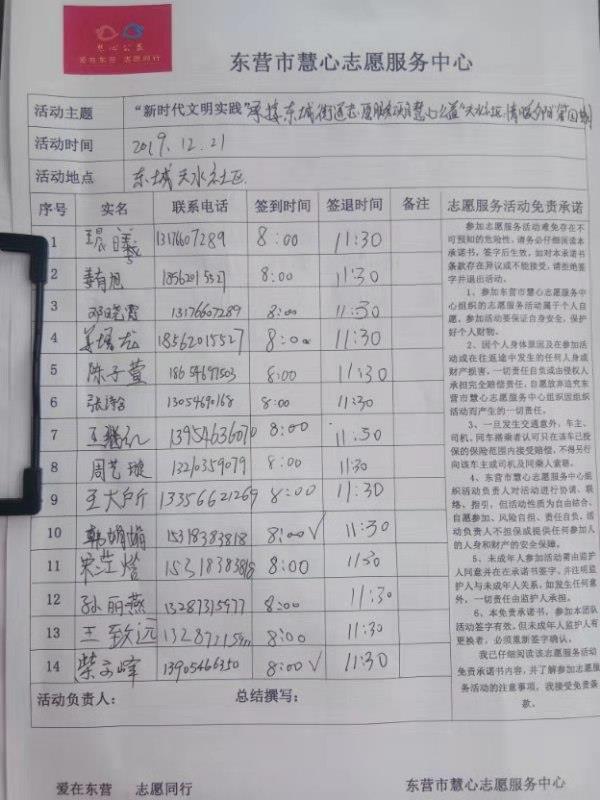 慧心公益
爱在东营 志愿同行
东营市慧心志愿服务中心
活动主题 “新时代文明实践”承接东城街道志愿服务项目慧心公益“天水社区
活动时间 2019.12.21
活动地点 东城天水社区
序号 实名 联系电话 签到时间 签退时间 备注 志愿服务活动免责承诺
1 13176607289 8:00 11:30
2 18562015527 8:00 11:30
3 邓晓霞 13176607289 8:00 11:30
4 姜增龙 18562015527 8:00 11:30
5 陈子萱 18654697503 8:00 11:30
6 13054690168 8:00 11:30
7 8:00 11:30
8 周艺璇 13210359079 8:00 11:30
9 13356621269 8:00 11:30
10 韩娟娟 15318383818 8:00√ 11:30
11 15318383818 8:00 11:30
12 孙丽燕 13287315977 8:00 11:30
13 王致远 8:00 11:30
14 柴子峰 13905466350 8:00√ 11:30
参加志愿服务活动难免存在不
可预知的危险性，请务必仔细阅读本
承诺书，签字后生效，如对本承诺书
条款存在异议或不能接受，请拒绝签
字并退出活动。
1、参加东营市慧心志愿服务中
心组织的志愿服务活动属于个人自
愿。参加活动要保证自身安全，保护
好个人财物。
2、因个人身体原因及在参加活
动或在往返途中发生的任何人身或
财产损害，一切责任自负或由侵权人
承担完全赔偿责任，自愿放弃追究东
营市慧心志愿服务中心组织因组织
活动而产生的一切责任。
3、一旦发生交通意外，车主、
司机，同车搭乘者认可只在该车已投
保的保险范围内接受赔偿，不得另行
向该车主或司机及同乘人索赔。
4、东营市慧心志愿服务中心组
织活动负责人对活动进行协调、联
络、指引，但活动性质为自由结合、
自愿参加、风险自担、责任自负，活
动负责人不担保或提供任何参加人
的人身和财产的安全保障。
5、未成年人参加活动需由监护
人同意并在在承诺书签字，并注明监
护人与未成年人关系，如发生任何意
外，一切责任由监护人承担。
6、本免责承诺书，参加本团队
活动签字有效，但未成年人监护人有
更换者，必须重新签字确认。
我已仔细阅读该志愿服务活动
免责承诺书内容，并了解参加志愿服
务活动的注意事项，我接受免责条
款。
活动负责人： 总结撰写：
爱在东营 志愿同行 东营市慧心志愿服务中心